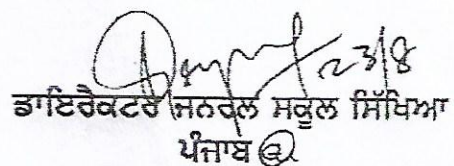 23/8
ਡਾਇਰੈਕਟਰ ਜਨਰਲ ਸਕੂਲ ਸਿੱਖਿਆ
ਪੰਜਾਬ